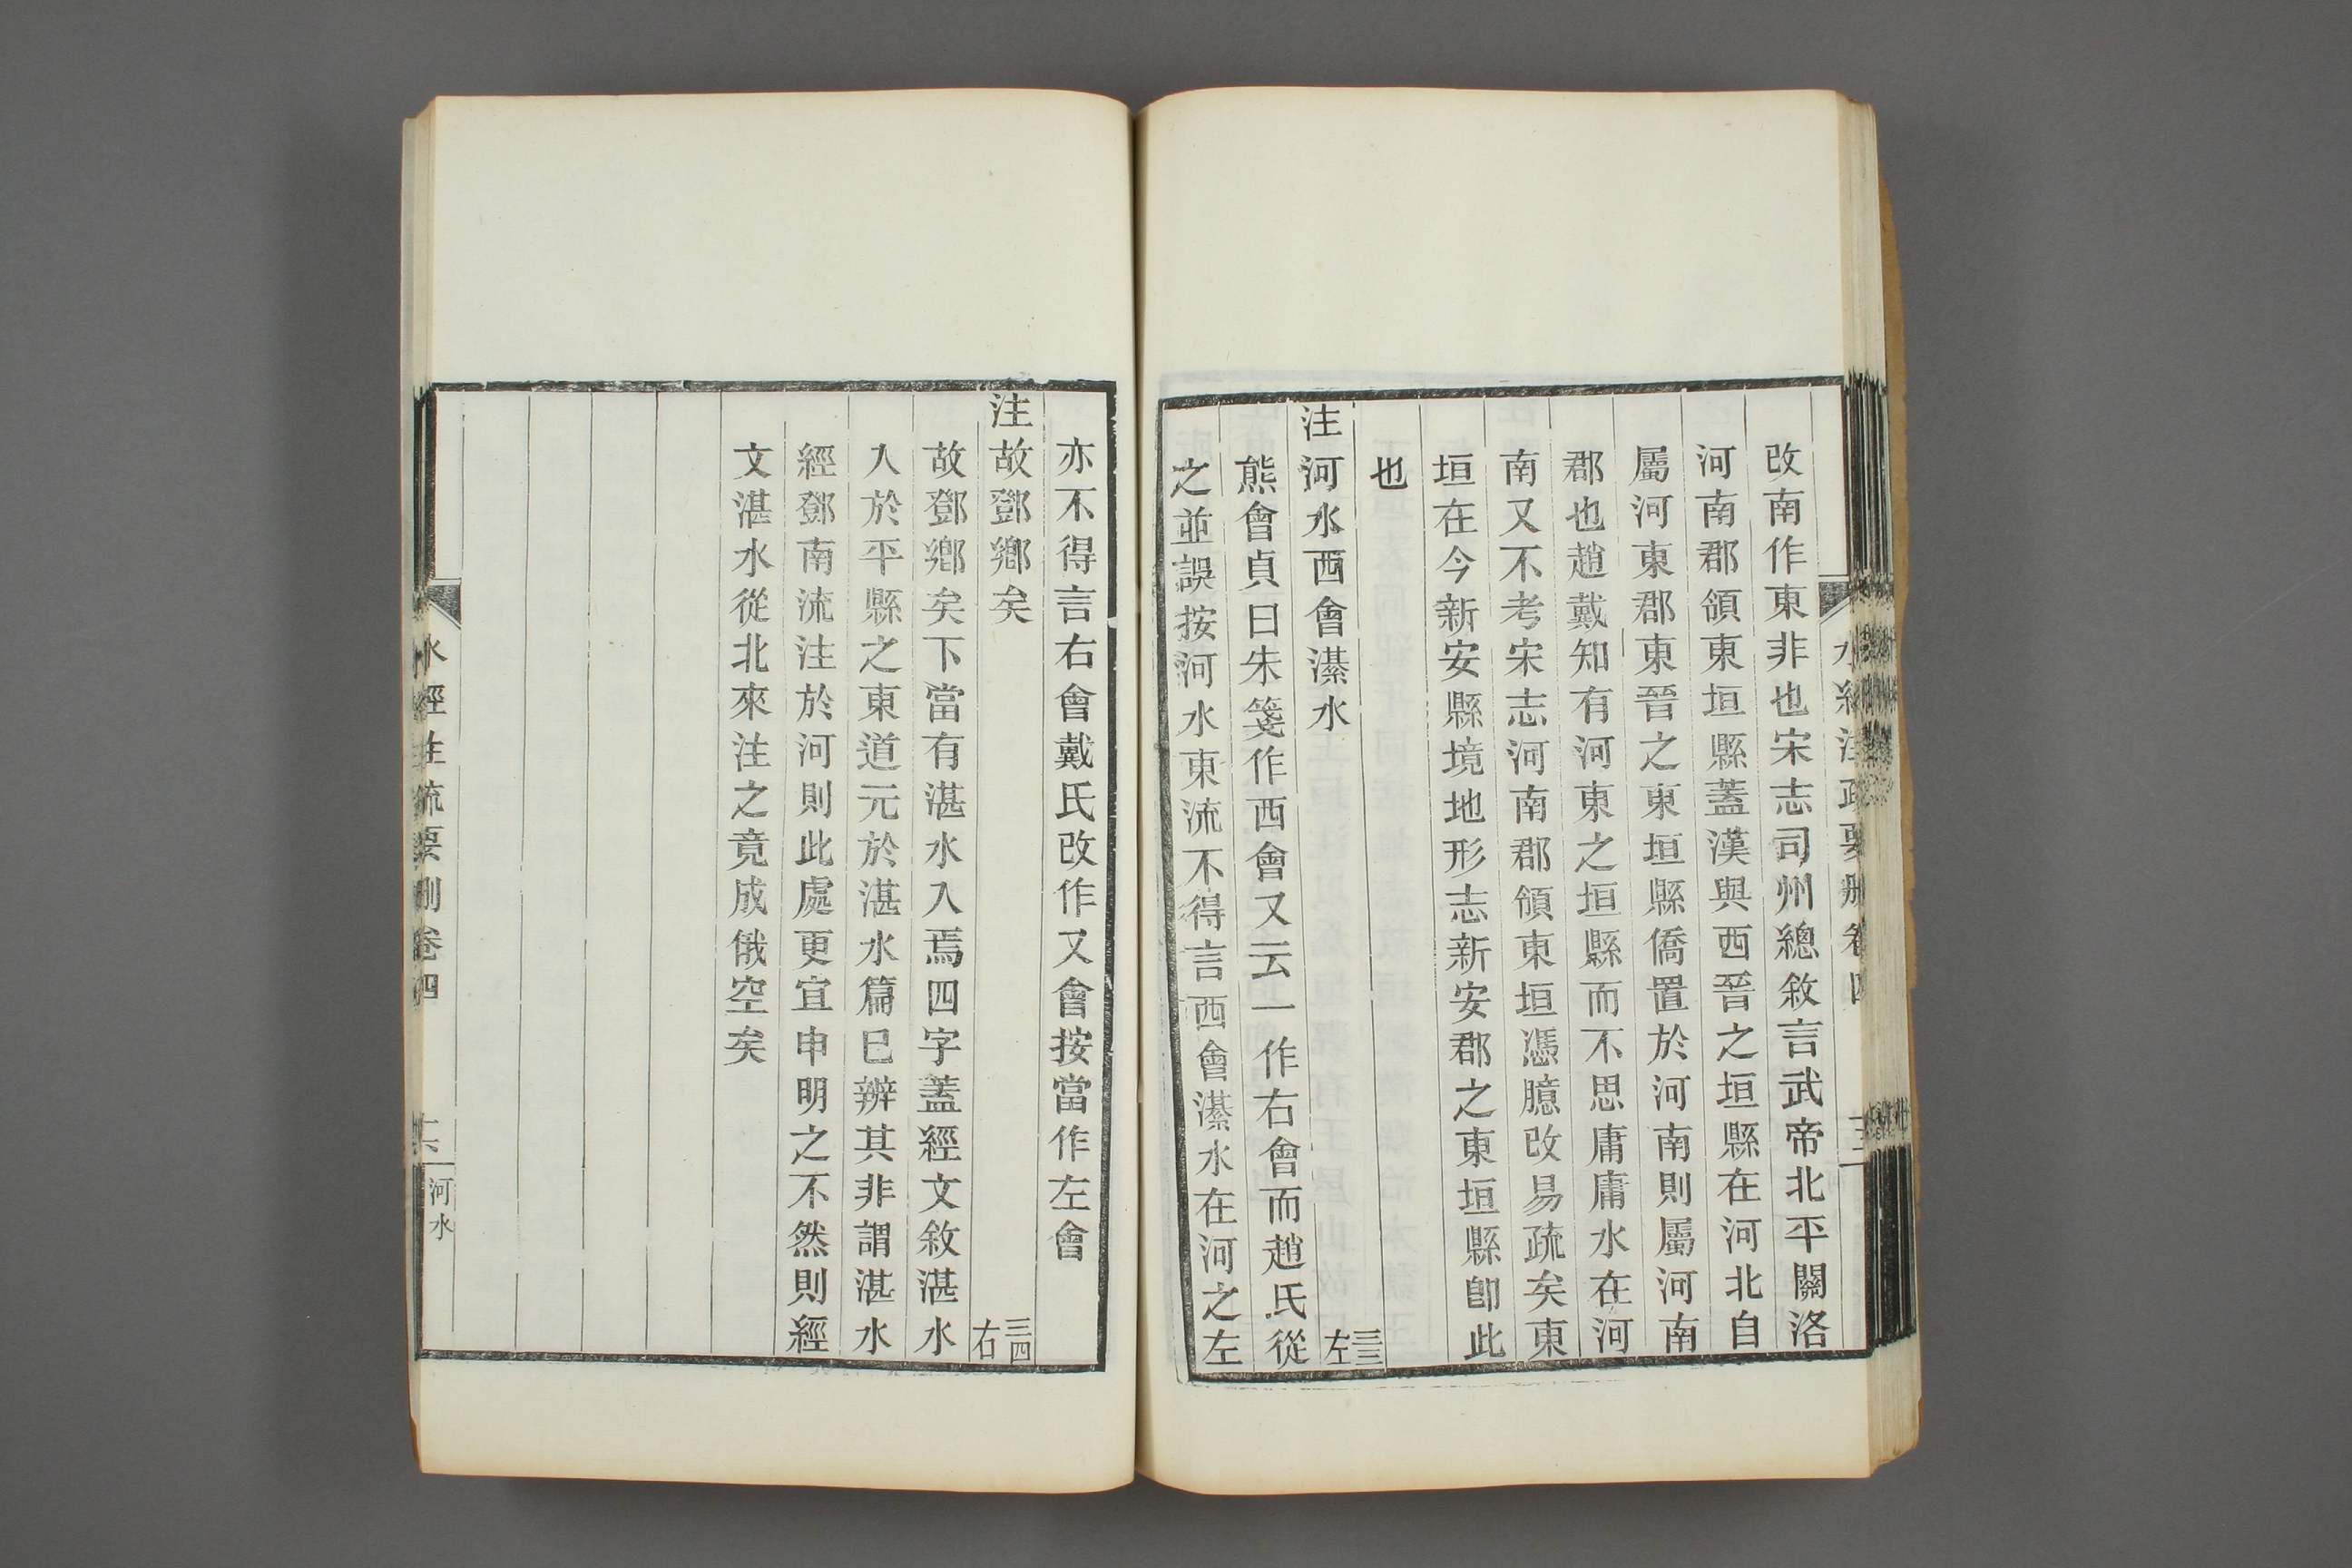 改南作東非也宋志司州總敘言武帝北平關洛
河南郡領東垣縣蓋漢與西晉之垣縣在河北自
屬河東郡東晉之東垣縣僑置於河南則屬河南
郡也趙戴知有河東之垣縣而不思庸庸水在河
南又不考宋志河南郡領東垣憑臆改易疏矣東
垣在今新安縣境地形志新安郡之東垣縣卽此
也
注河水西會濝水 三三左
熊會貞曰朱箋作西會又云一作右會而趙氏從
之並誤按河水東流不得言西會濝水在河之左
亦不得言右會戴氏改作又會按當作左會
注故鄧鄉矣 三四右
故鄧鄉矣下當有湛水入焉四字蓋經文敘湛水
入於平縣之東道元於湛水篇已辨其非謂湛水
經鄧南流注於河則此處更宜申明之不然則經
文湛水從北來注之竟成俄空矣
水經注疏要刪卷四
河水